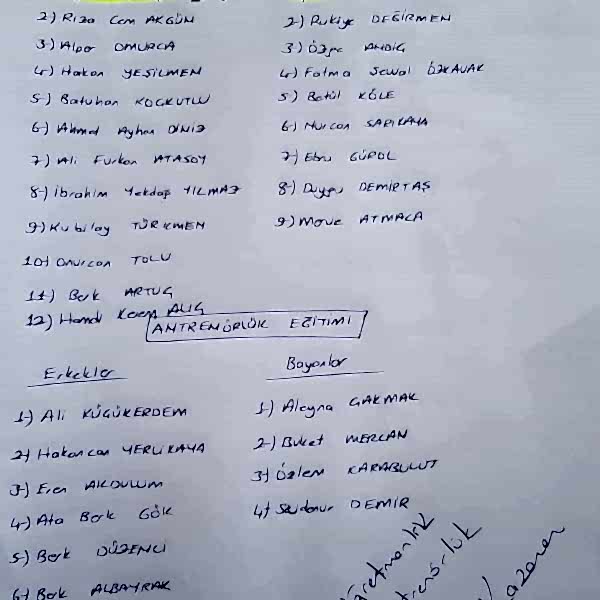 2-) Rıza Cem AKGÜN
3-) Alper OMURCA
4-) Hakan YEŞİLMEN
5-) Batuhan KOÇKUTLU
6-) Ahmet Ayhan DİNİZ
7-) Ali Furkan ATASOY
8-) İbrahim Yekdaş YILMAZ
9-) Kubilay TÜRKMEN
10-) Onurcan TOLU
11-) Berk ARTUÇ
12-) Hamdi Kerem ALIÇ
2-) Rukiye DEĞİRMEN
3-) Özge ANDİÇ
4-) Fatma Sewal ÖZKAVAK
5-) Betül KÖLE
6-) Nurcan SARIKAYA
7-) Ebru GÜROL
8-) Duygu DEMİRTAŞ
9-) Merve ATMACA
ANTRENÖRLÜK EĞİTİMİ
Erkekler
1-) Ali KÜÇÜKERDEM
2-) Hakancan YERLİKAYA
3-) Eren AKDULUM
4-) Ata Berk GÖK
5-) Berk DÜZENCİ
6-) Berk ALBAYRAK
Bayanlar
1-) Aleyna ÇAKMAK
2-) Buket MERCAN
3-) Özlem KARABULUT
4-) Seudanur DEMİR